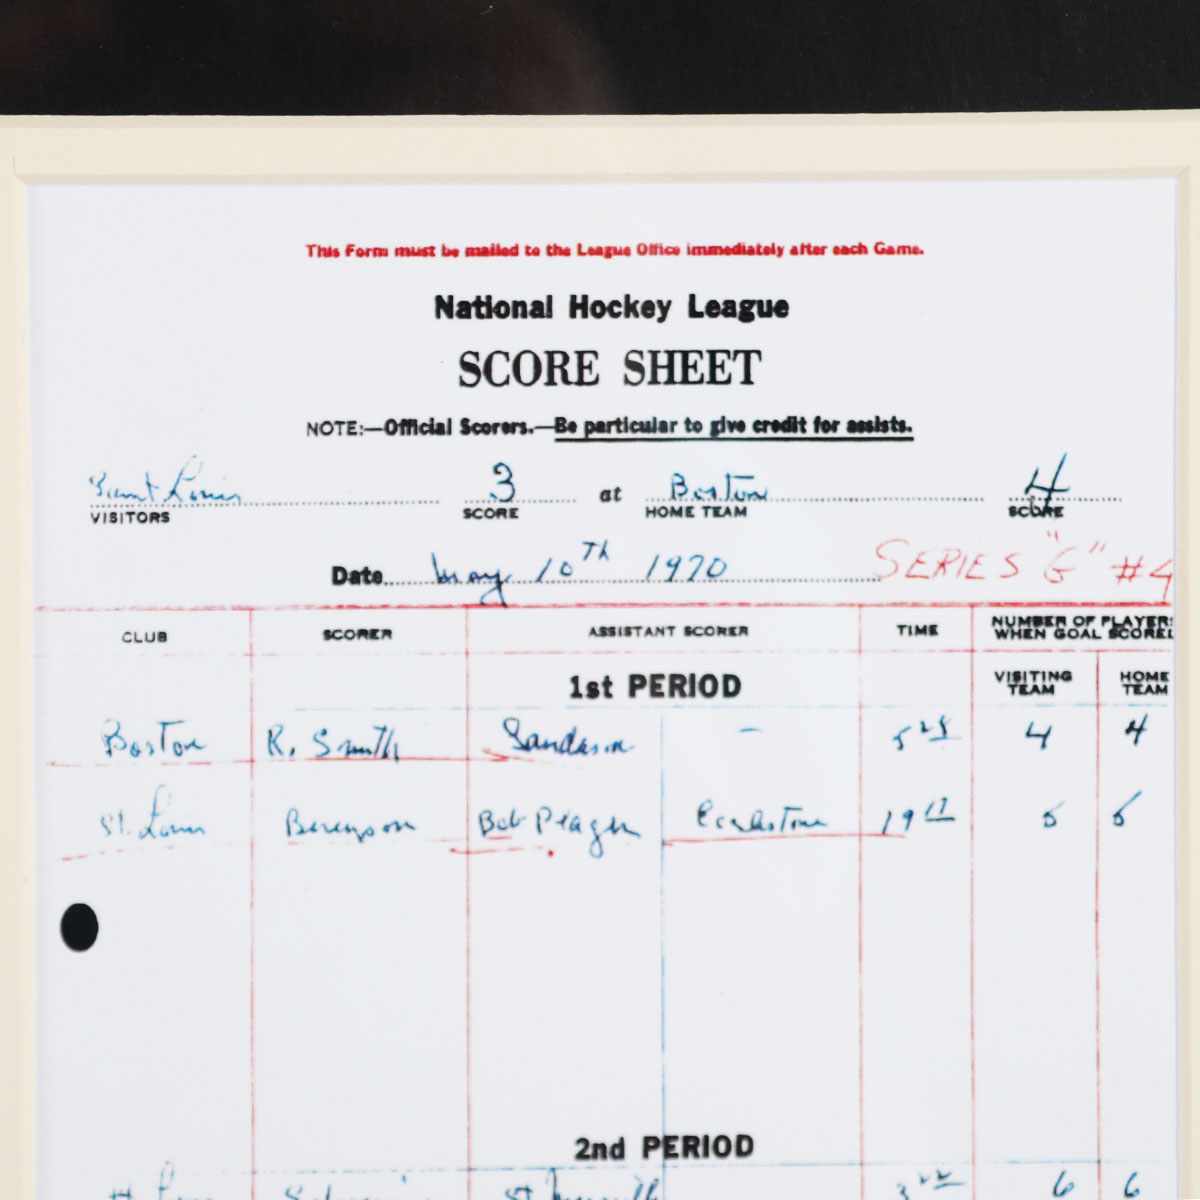 This Form must be mailed to the League Office immediately after each Game.
National Hockey League
SCORE SHEET
NOTE:—Official Scorers.—Be particular to give credit for assists.
Saint Louis 3 at Boston 4
VISITORS SCORE HOME TEAM SCORE
Date May 10TH 1970 SERIES "G" #4
CLUB SCORER ASSISTANT SCORER TIME NUMBER OF PLAYERS WHEN GOAL SCORED
1st PERIOD VISITING TEAM HOME TEAM
Boston R. Smith Sanderson — 5 28 4 4
St. Louis Berenson Bob Plager Ecclestone 19 17 5 5
2nd PERIOD
3 22 6 6